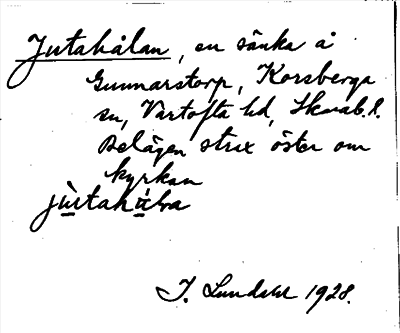 Jutahålan, en sänka å
Gunnarstorp, Korsberga
sn, Vartofta hd, Skarab. l.
Belägen strax öster om
kyrkan
jutahula
J. Lundahl 1928.